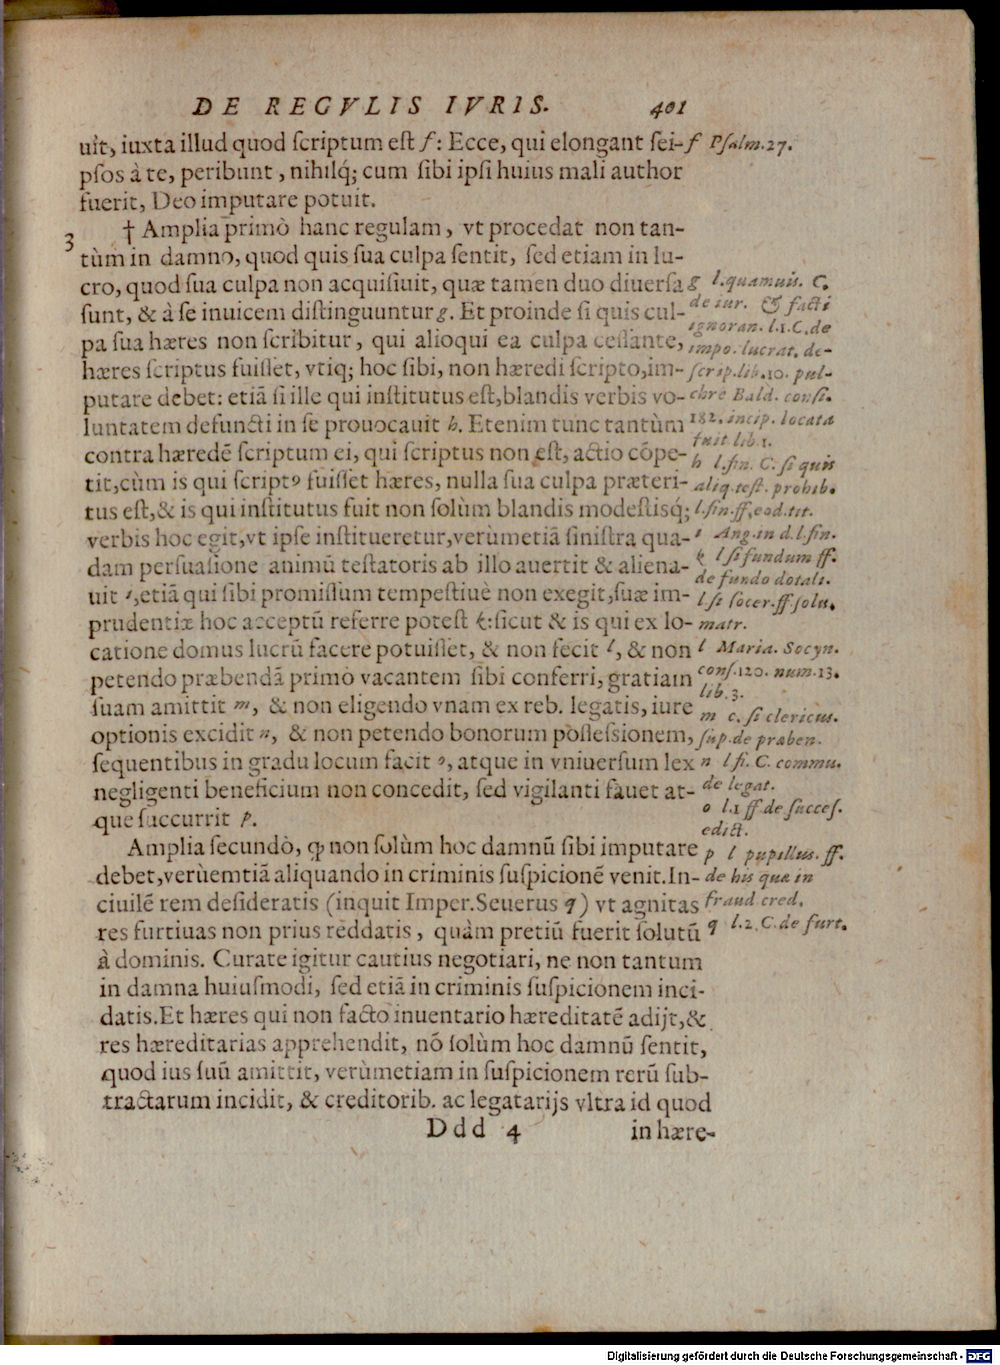 DE REGVLIS IVRIS. 401
uit, iuxta illud quod ſcriptum eſt f: Ecce, qui elongant ſei-
pſos à te, peribunt, nihilq́; cum ſibi ipſi huius mali author
fuerit, Deo imputare potuit.
† Amplia primò hanc regulam, vt procedat non tan-
tùm in damno, quod quis ſua culpa ſentit, ſed etiam in lu-
cro, quod ſua culpa non acquiſiuit, quæ tamen duo diuerſa
ſunt, & à ſe inuicem diſtinguuntur g. Et proinde ſi quis cul-
pa ſua hæres non ſcribitur, qui alioqui ea culpa ceſſante,
hæres ſcriptus fuiſſet, vtiq; hoc ſibi, non hæredi ſcripto, im-
putare debet: etiã ſi ille qui inſtitutus eſt, blandis verbis vo-
luntatem defuncti in ſe prouocauit h. Etenim tunc tantùm
contra hæredẽ ſcriptum ei, qui ſcriptus non eſt, actio cõpe-
tit, cùm is qui ſcriptꝰ fuiſſet hæres, nulla ſua culpa præteri-
tus eſt, & is qui inſtitutus fuit non ſolùm blandis modeſtisq́;
verbis hoc egit, vt ipſe inſtitueretur, verùmetiã ſiniſtra qua-
dam perſuaſione animũ teſtatoris ab illo auertit & aliena-
uit i, etiã qui ſibi promiſſum tempeſtiuè non exegit, ſuæ im-
prudentiæ hoc acceptũ referre poteſt k: ſicut & is qui ex lo-
catione domus lucrũ facere potuiſſet, & non fecit l, & non
petendo præbendã primò vacantem ſibi conferri, gratiam
ſuam amittit m, & non eligendo vnam ex reb. legatis, iure
optionis excidit n, & non petendo bonorum poſſeſsionem,
ſequentibus in gradu locum facit o, atque in vniuerſum lex
negligenti beneficium non concedit, ſed vigilanti fauet at-
que ſuccurrit p.
Amplia ſecundò, ꝙ non ſolùm hoc damnũ ſibi imputare
debet, verùemtiã aliquando in criminis ſuſpicionẽ venit. In-
ciuilẽ rem deſideratis (inquit Imper. Seuerus q) vt agnitas
res furtiuas non prius reddatis, quàm pretiũ fuerit ſolutũ
à dominis. Curate igitur cautius negotiari, ne non tantum
in damna huiuſmodi, ſed etiã in criminis ſuſpicionem inci-
datis. Et hæres qui non facto inuentario hæreditatẽ adijt, &
res hæreditarias apprehendit, nõ ſolùm hoc damnũ ſentit,
quod ius ſuũ amittit, verùmetiam in ſuſpicionem rerũ ſub-
tractarum incidit, & creditorib. ac legatarijs vltra id quod
Ddd 4 in hære-
3
f Pſalm. 27.
g l. quamuis. C.
de iur. & facti
ignoran. l. 1. C. de
impo. lucrat. de-
ſcrip. lib. 10. pul-
chre Bald. conſi.
182. incip. locata
fuit lib. 1.
h l. fin. C. ſi quis
aliq. teſt. prohib.
l. fin. ff. eod. tit.
i Ang. in d. l. fin.
k l ſi fundum ff.
de fundo dotali.
l. ſi ſocer. ff. ſolu.
matr.
l Maria. Socyn.
conſ. 120. num. 13.
lib. 3.
m c. ſi clericus.
ſup. de præben.
n l fi. C. commu.
de legat.
o l. 1 ff. de ſucceſ.
edict.
p l pupillus. ff.
de his quæ in
fraud cred.
q l. 2. C. de furt.
Digitalisierung gefördert durch die Deutsche Forschungsgemeinschaft - DFG